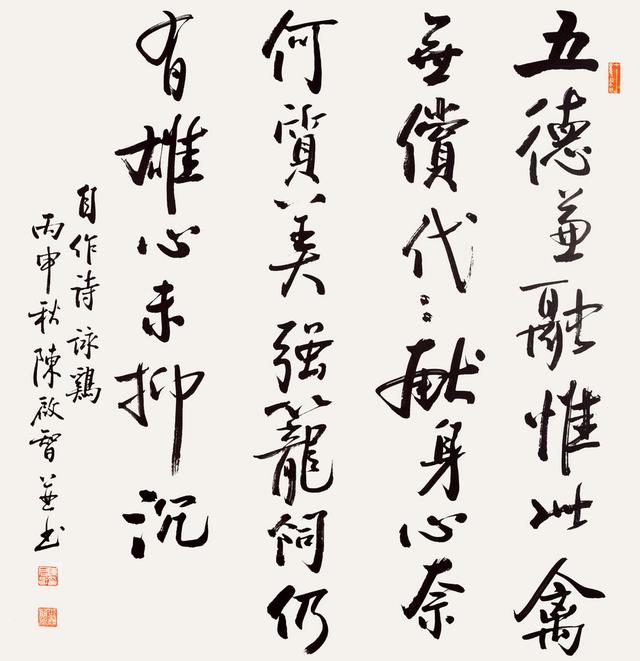 五德兼融惟此禽
無償代〻献身心奈
何質美强籠飼仍
有雄心未抑沉
自作詩詠鷄
丙申秋陳啟智並书